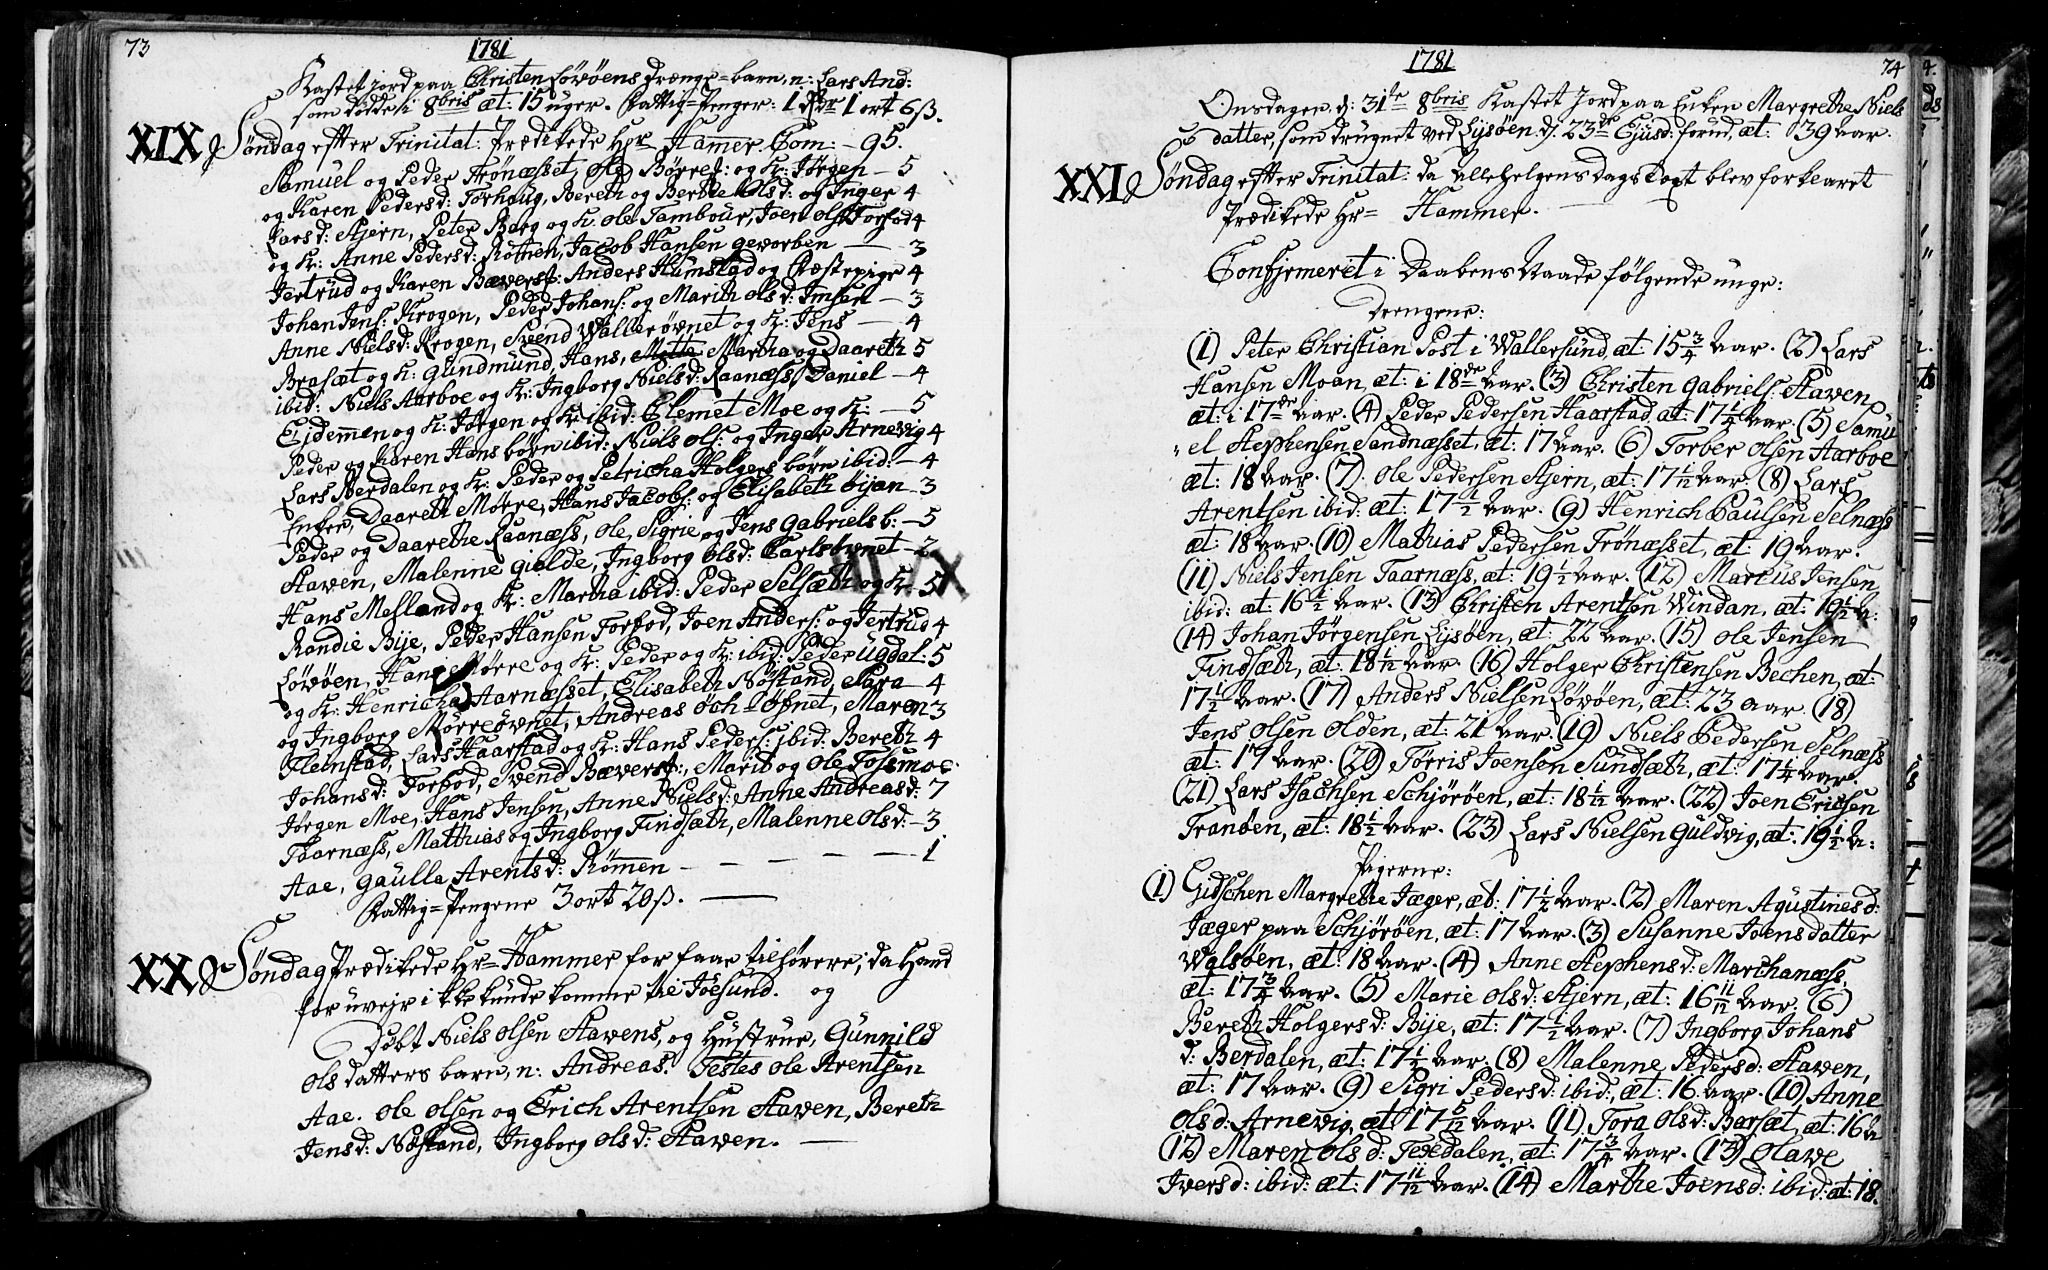 73
1781
Kastet jord paa Christen Løvøens Drænge-barn, n: Lars And:
som døde i 8bris æt: 15 uger. Fattig-Penger: 1 ort 6ß.
XIX Søndag effter Trinitat: Prædikede Hr Hamer Com: - 95.
Samuel og Peder Trönæsset, Ole Børres: og K: Jørgen - 5
og Karen Pedersd: Torhaug, Bereth og Berthe Olsd: og Inger 4
Larsd: Stjern, Peter Borg og K: Ole Tambour, Joen Ols: Forfod 4
og K: Anne Pedersd: Römen, Jacob Hansen gevorben - 3
Jertrud og Karen Bæverf: Anders Humstad og Præstepige 4
Johan Jens: Krogen, Peder Johans: og Marith Olsd: Imsen - 3
Anne Nielsd: Krogen, Svend Wallersøvnet og K: Jens - 4
Brasæt og K: Gundmund, Hans, Mette Martha og Daareth 5
ibid: Niels Aarboe og K: Ingborg Nielsd: Raanæss, Daniel - 4
Ejdemen og K: Jørgen og K: ibid: Clemet Moe og K: - 5
Peder og Karen Hans børn ibid: Niels Ols: og Inger Arnevig 4
Lars Berdalen og K: Peder og Petricha Holgers børn ibid: - 4
Enker, Daareth Mørre, Hans Jacobs: og Elisabeth Øijan - 3
Peder og Daarethe Raanæss, Ole, Sigrie og Jens Gabriels b: - 5
Staven, Malenne Gielde, Ingborg Olsd: Carlsøvnet - 2
Hans Mesland og K: Martha ibid: Peder Selsæth og K: 5
Randie Bije, Peder Hansen Forfod, Joen Anders: og Jertrud 4
Løvøen, Hans Mørre og K: Peder og K: ibid: Peder Ugdal: 5
og K: Henricha Aarnæsset, Elisabeth Nøstand, Sara - 4
og Ingborg Mørreøvnet, Andreas och-løsnet, Maren 3
Fleinstad, Lars Haarstad og K: Hans Peders: ibid: Bereth 4
Johansd: Forfod, Svend Bæverf:, Marit og Ole Fossmoe
Jørgen Moe, Hans Jensen, Anne Nielsd: Anne Andreasd: 7
Taarnæss, Matthias og Ingborg Tindsæth, Malenne Olsd: - 3
Aae, Gaulle Arentsd: Römen - - - - - 1
Fattig-Pengene 3 ort 20ß.
XX Søndag Prædikede Hr Hammer for faae tilhørere; da Hand
for uvejr ikke kunde komme til Jøesund. og
Døbt Niels Olsen Stavens, og Hustrue, Gunnild
Olsdatters barn, n: Andreas. Testes Ole Arentsen
Aae. Ole Olsen og Erich Arentsen Staven, Bereth
Jensd: Nøstand, Ingborg Olsd: Staven.
1781
74
Onsdagen d: 31te 8bris Kastet Jord paa Enken Margrethe Niels
datter, som druknet ved Lysøen d. 23de Ejusd: forud, æt: 39 aar.
XXI Søndag effter Trinitat: da Allehelgens Dags Text blev forklaret
Prædikede Hr Hammer.
Confirmeret i Daabens Naade følgende unge:
Drengene:
(1) Peter Christian Post i Wallersund, æt: 15 3/4 Aar. (2) Lars
Hansen Moan, æt: i 18de Aar. (3) Christen Gabriels: Staven
æt: i 17de Aar. (4) Peder Pedersen Haarstad, æt: 17 1/4 Aar. (5) Samu
el Stephensen Sandnæsset, æt: 17 Aar. (6) Torber Olsen Aarboe
æt: 18 Aar. (7) Ole Pedersen Stjern, æt: 17 1/2 Aar. (8) Lars
Arentsen ibid: æt: 17 1/2 Aar. (9) Henrich Paulsen Selnæss
æt: 18 Aar. (10) Mathias Pedersen Trönæsset, æt: 19 Aar.
(11) Niels Jensen Taarnæss, æt: 19 1/2 Aar. (12) Marcus Jensen
ibid: æt: 16 1/2 Aar. (13) Christen Arentsen Windan, æt: 19 1/2 A:
(14) Johan Jörgensen Lysøen, æt: 22 Aar. (15) Ole Jensen
Tindsæth, æt: 18 1/2 Aar. (16) Holger Christensen Bechen, æt:
17 1/2 Aar. (17) Anders Nielsen Løvøen, æt: 23 aar. (18)
Jens Olsen Olden, æt: 21 Aar. (19) Niels Pedersen Selnæss
æt: 17 Aar. (20) Tørris Joensen Sundsæth, æt: 17 1/4 Aar.
(21) Lars Isachsen Schjörøen, æt: 18 1/2 Aar. (22) Joen Ericsen
Tranøen, æt: 18 1/2 Aar. (23) Lars Nielsen Guldvig, æt: 19 1/2 A:
Pigerne:
(1) Gidschen Margrethe Jæger, æt: 17 1/2 Aar. (2) Maren Agustinesd:
Jæger paa Schjörøen, æt: 17 Aar. (3) Susanne Joensdatter
Walsøen, æt: 18 Aar. (4) Anne Stephensd: Marthanæss,
æt: 17 3/4 Aar. (5) Marie Olsd: Stjern, æt: 16 11/12 Aar. (6)
Bereth Holgersd: Bije, æt: 17 1/2 Aar. (7) Ingborg Johans
d: Berdalen, æt: 17 1/2 Aar. (8) Malenne Pedersd: Staven,
æt: 17 Aar. (9) Sigri Pedersd: ibid:, æt: 16 Aar. (10) Anne
Olsd: Arnevig, æt: 17 5/12 Aar. (11) Tora Olsd: Barsæt, æt: 16 A
(12) Maren Olsd: Teksdalen, æt: 17 3/4 Aar. (13) Olave
Iversd: ibid: æt: 17 11/12 Aar. (14) Marthe Joensd: ibid: æt: 18.